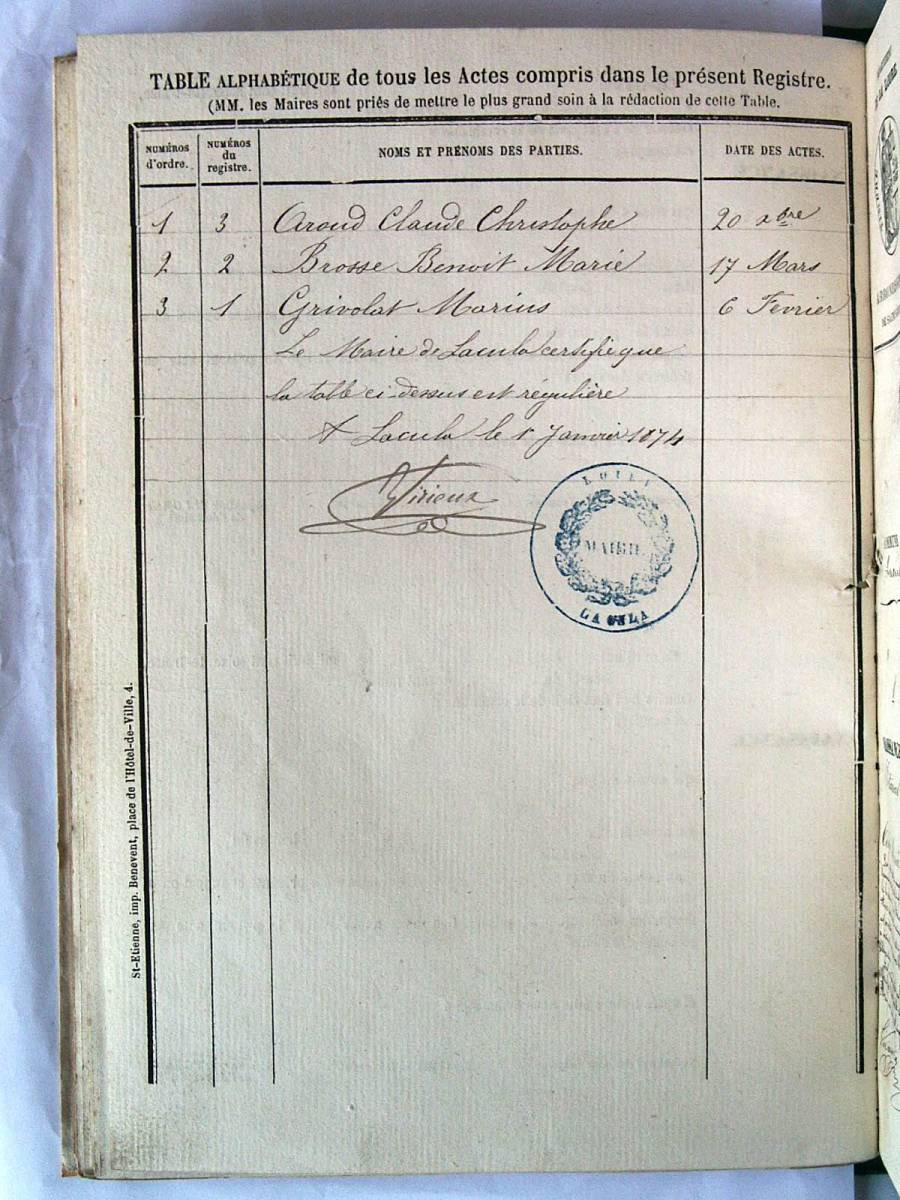 TABLE ALPHABÉTIQUE de tous les Actes compris dans le présent Registre.
(MM. les Maires sont priés de mettre le plus grand soin à la rédaction de cette Table.
NUMÉROS d'ordre. NUMÉROS du registre. NOMS ET PRÉNOMS DES PARTIES. DATE DES ACTES.
1 3 Aroud Claude Christophe 20 xbre
2 2 Brosse Benoit Marie 17 Mars
3 1 Grivolat Marius 6 Fevrier
Le Maire de Lacula certifie que
la table ci-dessus est régulière
A Lacula le 1r Janvier 1874
Virieux
LOIRE
MAIRIE
LA CULA
St-Etienne, imp. Benevent, place de l'Hôtel-de-Ville, 4.